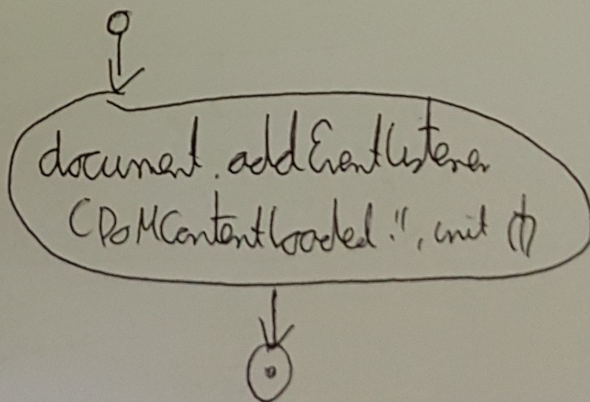 document.addEventListener
(DOMContentLoaded!", init ()